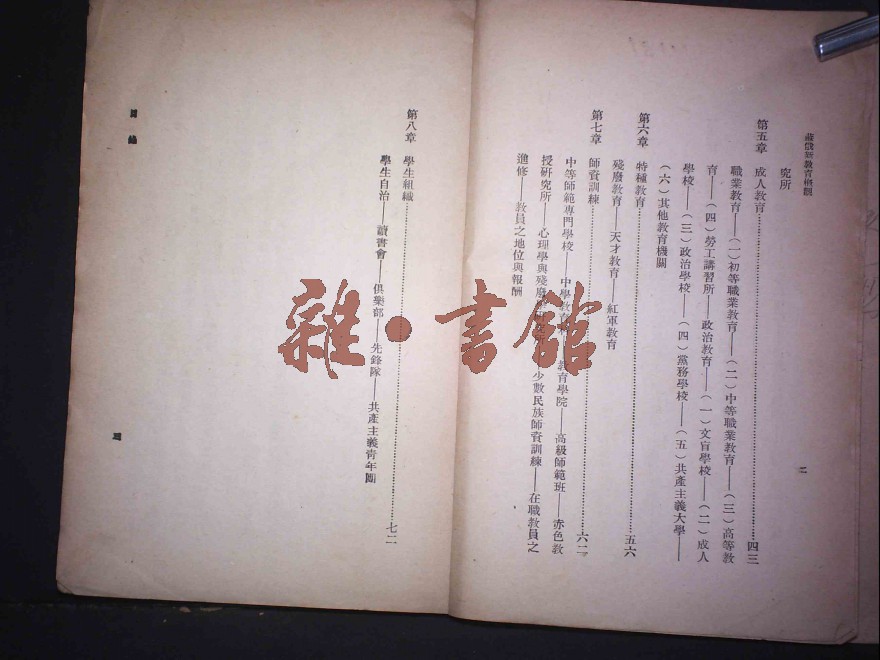 蘇俄新教育概觀
二
究所
第五章 成人教育……四三
職業教育——(一)初等職業教育——(二)中等職業教育——(三)高等教
育——(四)勞工講習所——政治教育——(一)文盲學校——(二)成人
學校——(三)政治學校——(四)黨務學校——(五)共產主義大學——
(六)其他教育機關
第六章 特種教育……五六
殘廢教育——天才教育——紅軍教育
第七章 師資訓練……六二
中等師範專門學校——中學教 教育學院——高級師範班——赤色教
授研究所——心理學與殘廢 少數民族師資訓練——在職教員之
進修——教員之地位與報酬
第八章 學生組織……七二
學生自治——讀書會——俱樂部——先鋒隊——共產主義青年團
目錄
三
雜·書館